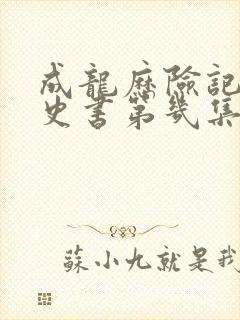 成龍歷險記
史書第幾集
蘇小九就是我